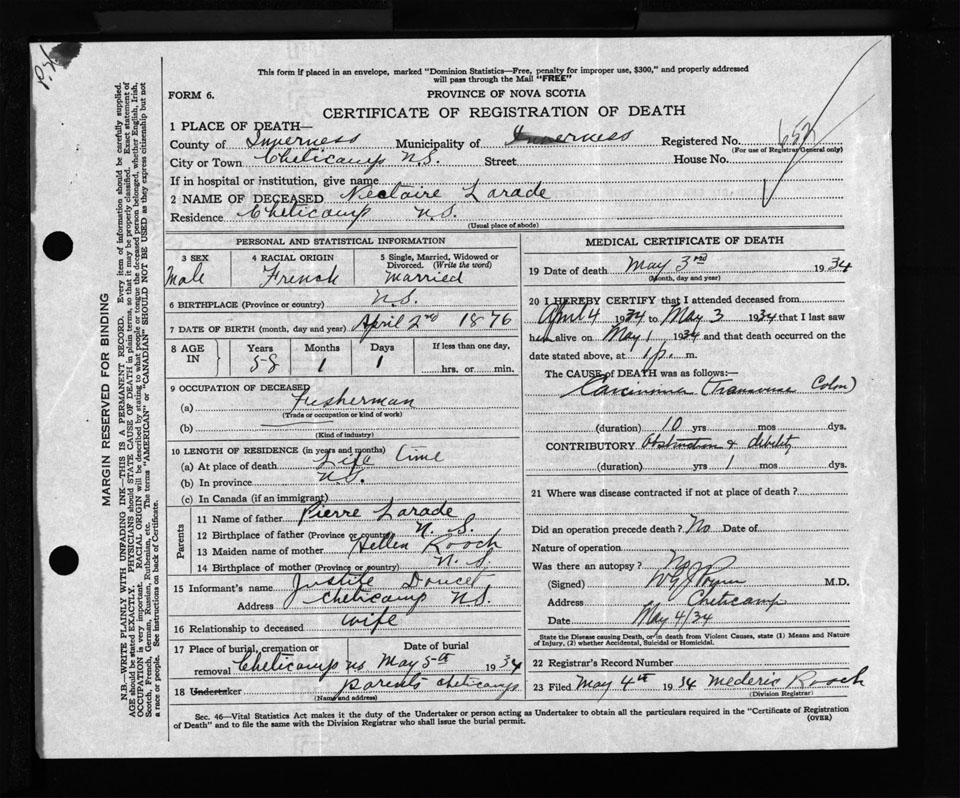 P.X
This form if placed in an envelope, marked "Dominion Statistics—Free, penalty for improper use, $300," and properly addressed
will pass through the Mail "FREE"
FORM 6.
PROVINCE OF NOVA SCOTIA
CERTIFICATE OF REGISTRATION OF DEATH
1 PLACE OF DEATH—
County of Inverness Municipality of Inverness Registered No. 652
(For use of Registrar General only)
City or Town Cheticamp N.S. Street House No.
If in hospital or institution, give name
2 NAME OF DECEASED Neclaire Larade
Residence Cheticamp N.S.
(Usual place of abode)
PERSONAL AND STATISTICAL INFORMATION
3 SEX 4 RACIAL ORIGIN 5 Single, Married, Widowed or
Divorced. (Write the word)
Male French Married
6 BIRTHPLACE (Province or country) N.S.
7 DATE OF BIRTH (month, day and year) April 2nd 1876
8 AGE IN Years Months Days If less than one day,
58 1 1 hrs. or min.
9 OCCUPATION OF DECEASED
(a) Fisherman
(Trade or occupation or kind of work)
(b)
(Kind of industry)
10 LENGTH OF RESIDENCE (in years and months)
(a) At place of death Life time
(b) In province N.S.
(c) In Canada (if an immigrant)
Parents
11 Name of father Pierre Larade
12 Birthplace of father (Province or country) N. S.
13 Maiden name of mother Hellen Rooch
14 Birthplace of mother (Province or country) N. S.
15 Informant's name Justife Doucet
Address Cheticamp N.S.
16 Relationship to deceased wife
17 Place of burial, cremation or removal Date of burial
Cheticamp ns May 5th 1934
18 Undertaker parents cheticamp
(Name and address)
MEDICAL CERTIFICATE OF DEATH
19 Date of death May 3rd 1934
(Month, day and year)
20 I HEREBY CERTIFY that I attended deceased from
April 4 1934 to May 3 1934 that I last saw
him alive on May 1 1934 and that death occurred on the
date stated above, at 1 p. m.
The CAUSE of DEATH was as follows:—
Carcinoma (Transverse Colon)
(duration) 10 yrs mos dys.
CONTRIBUTORY Obstruction & debility
(duration) yrs 1 mos dys.
21 Where was disease contracted if not at place of death?
Did an operation precede death? No Date of
Nature of operation
Was there an autopsy? No
(Signed) M.D.
Address Cheticamp
Date May 4/34
State the Disease causing Death, or in death from Violent Causes, state (1) Means and Nature
of Injury, (2) whether Accidental, Suicidal or Homicidal.
22 Registrar's Record Number
23 Filed May 4th 1934 Mederic Rooch
(Division Registrar)
Sec. 46—Vital Statistics Act makes it the duty of the Undertaker or person acting as Undertaker to obtain all the particulars required in the "Certificate of Registration
of Death" and to file the same with the Division Registrar who shall issue the burial permit.
(OVER)
MARGIN RESERVED FOR BINDING
N.B.—WRITE PLAINLY WITH UNFADING INK—THIS IS A PERMANENT RECORD. Every item of information should be carefully supplied.
AGE should be stated EXACTLY. PHYSICIANS should STATE CAUSE OF DEATH in plain terms, so that it may be properly classified. Exact statement of
OCCUPATION is very important. RACIAL ORIGIN will be described by stating to what people or tongue the deceased person belonged, whether English, Irish,
Scotch, French, German, Russian, Ruthenian, etc. The terms "AMERICAN" or "CANADIAN" SHOULD NOT BE USED as they express citizenship but not
a race or people. See instructions on back of Certificate.